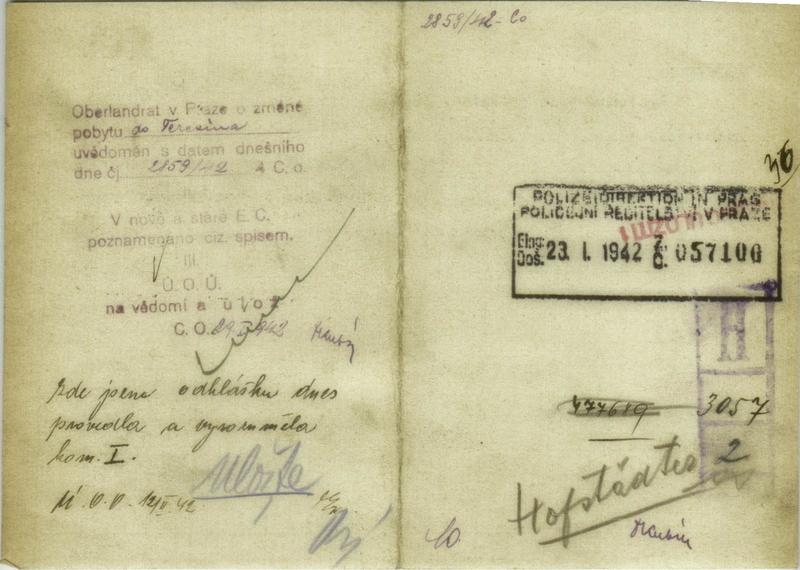 Oberlandrat v Praze o změně
pobytu do Teresina
uvědoměn s datem dnešního
dne čj. 2859/42 C. o.
V nové a staré E. C.
poznamenáno ciz. spisem.
III
Ú. O. Ú.
na vědomí a ulož
C. O.
Zde jsem odhlášku dnes
provedla a vyrozuměla
kom. I.
Ú. O. Ú. 12/II. 42
2859/42- Co
36
POLIZEIDIREKTION IN PRAG
POLICEJNÍ ŘEDITELSTVÍ V PRAZE
Eing.
Doš. 23. I. 1942 Z. Č. 057100
H
477619 3057
2
Hofstädter
Co.